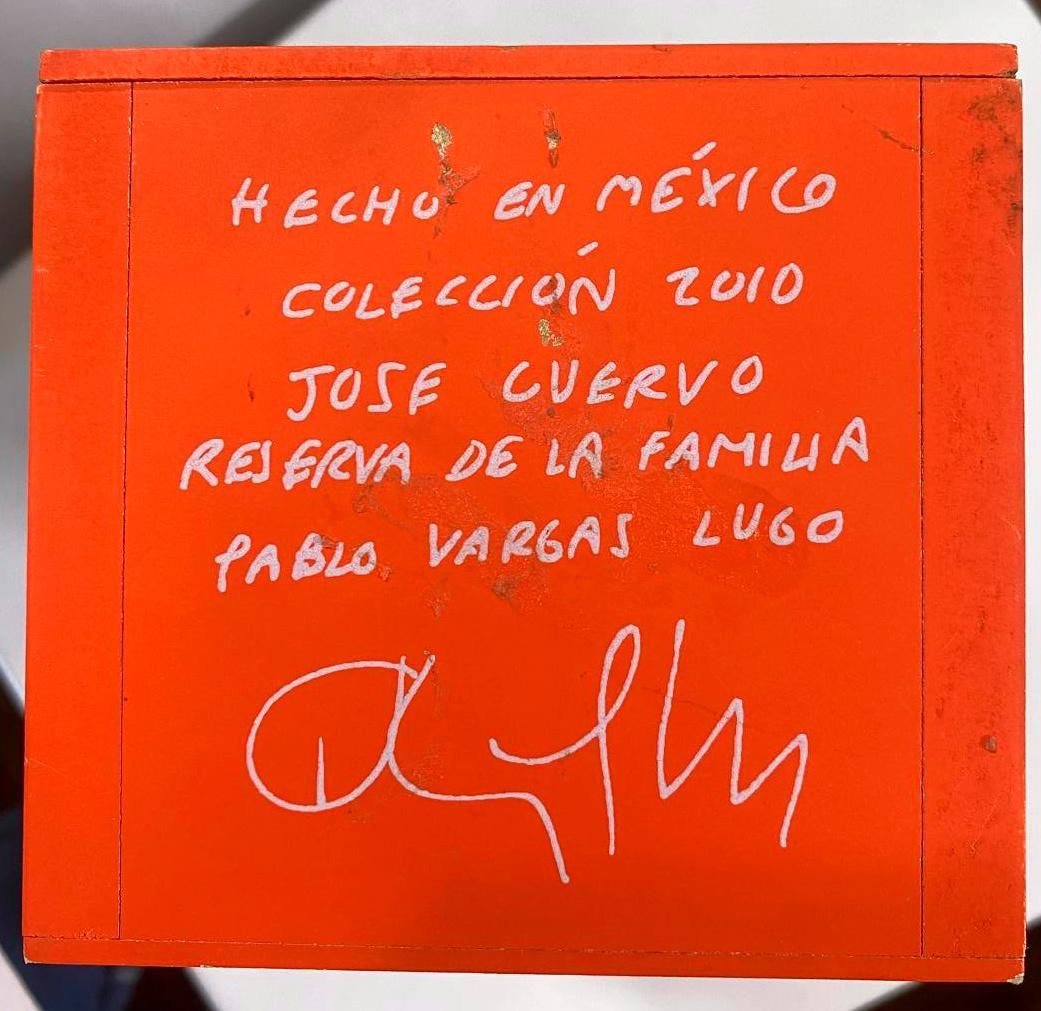 HECHO EN MÉXICO
COLECCIÓN 2010
JOSE CUERVO
RESERVA DE LA FAMILIA
PABLO VARGAS LUGO